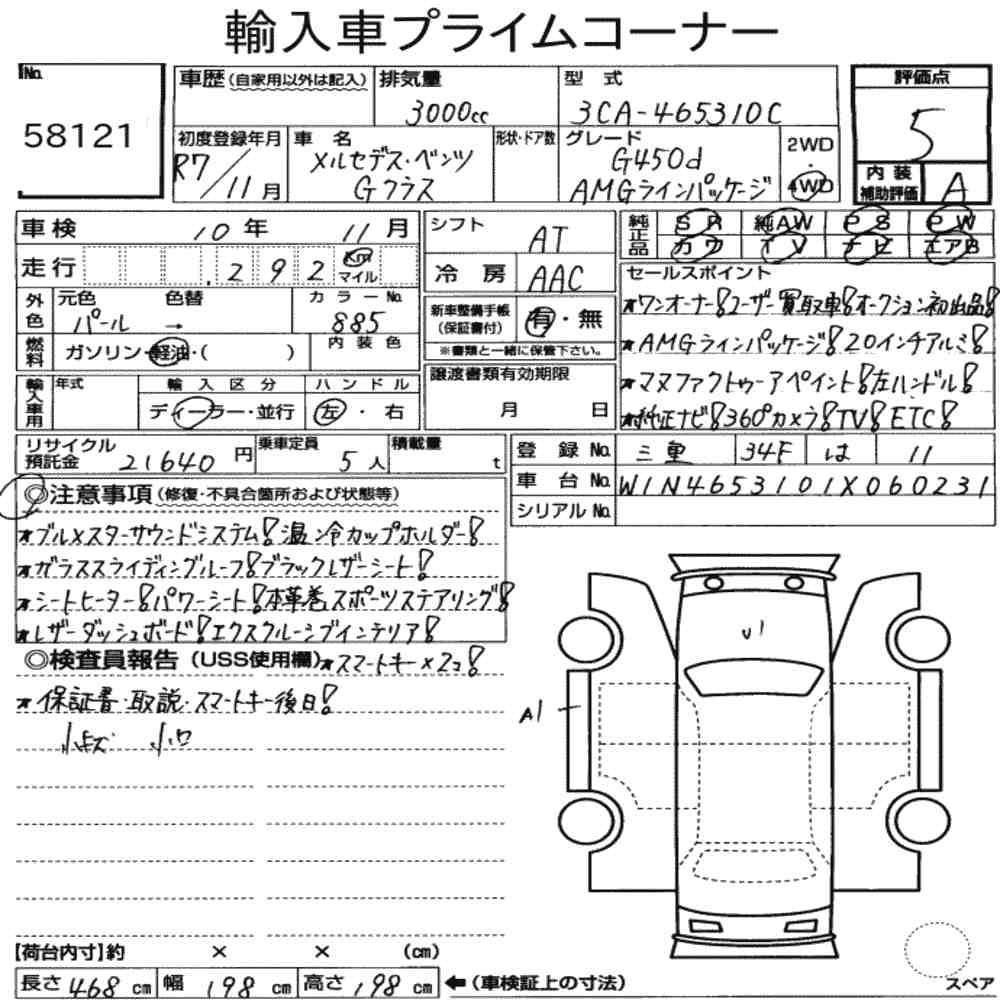 輸入車プライムコーナー
No.
58121
車歴(自家用以外は記入)
排気量
3000cc
型式
3CA-465310C
評価点
5
初度登録年月
R7/11月
車名
メルセデス・ベンツ
Gクラス
形状・ドア数
グレード
G450d
AMGラインパッケージ
2WD
・
4WD
内装
補助評価
A
車検
10年 11月
シフト
AT
純正品
SR 純AW PS PW
カワ TV ナビ エアB
走行
.292
Km
マイル
冷房
AAC
セールスポイント
★ワンオーナー!ユーザー買取車!オークション初出品!
★AMGラインパッケージ!20インチアルミ!
★マヌファクトゥーアペイント!左ハンドル!
★純正ナビ!360°カメラ!TV!ETC!
外色
元色 色替
パール →
カラーNo.
885
新車整備手帳
(保証書付)
有・無
※書類と一緒に保管下さい。
燃料
ガソリン・軽油・( )
内装色
輸入車用
年式
輸入区分
ディーラー・並行
ハンドル
左・右
譲渡書類有効期限
月 日
リサイクル
預託金
21640円
乗車定員
5人
積載量
t
登録No.
三重 34F は 11
車台No.
W1N4653101X060231
シリアルNo.
◎注意事項(修復・不具合箇所および状態等)
★ブルメスターサウンドシステム!温冷カップホルダー!
★ガラススライディングルーフ!ブラックレザーシート!
★シートヒーター!パワーシート!本革巻スポーツステアリング!
★レザーダッシュボード!エクスクルーシブインテリア!
◎検査員報告(USS使用欄)★スマートキー×2コ!
★保証書・取説・スマートキー後日!
U1
A1
【荷台内寸】約 × × (cm)
長さ468cm 幅198cm 高さ198cm ←(車検証上の寸法)
スペア